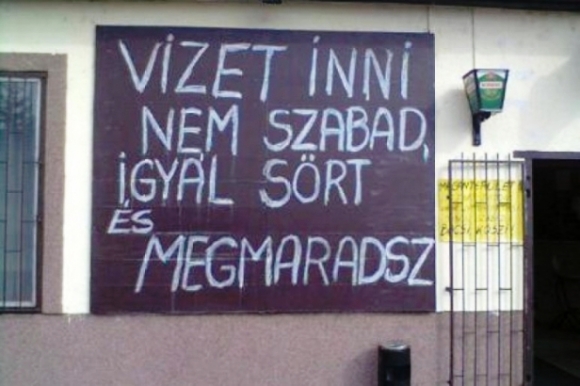 VIZET INNI
NEM SZABAD,
IGYÁL SÖRT
ÉS
MEGMARADSZ